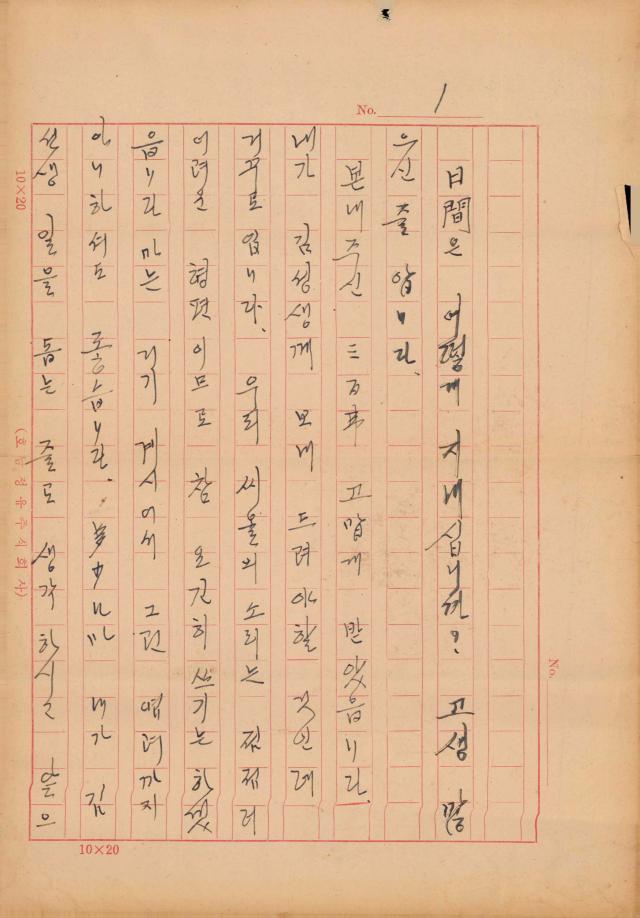 No. 1
日間은 어떻게 지내십니까? 고생 많
으신 줄 압니다.
본내주신 三百弗 고맙게 받았읍니다.
내가 김성생께 보내 드려야할 것인데
거꾸로 됩니다. 우리 씨올의 소리는 점점 더
어려운 형편이므로 참 요긴히 쓰기는 하겠
읍니다 마는 거기 계시어서 그런 염려까지
아니하셔도 좋습니다. 내가 김
선생 일을 돕는 줄로 생각하시고 앞으
No.
10×20
10×20
(호남정유주식회사)